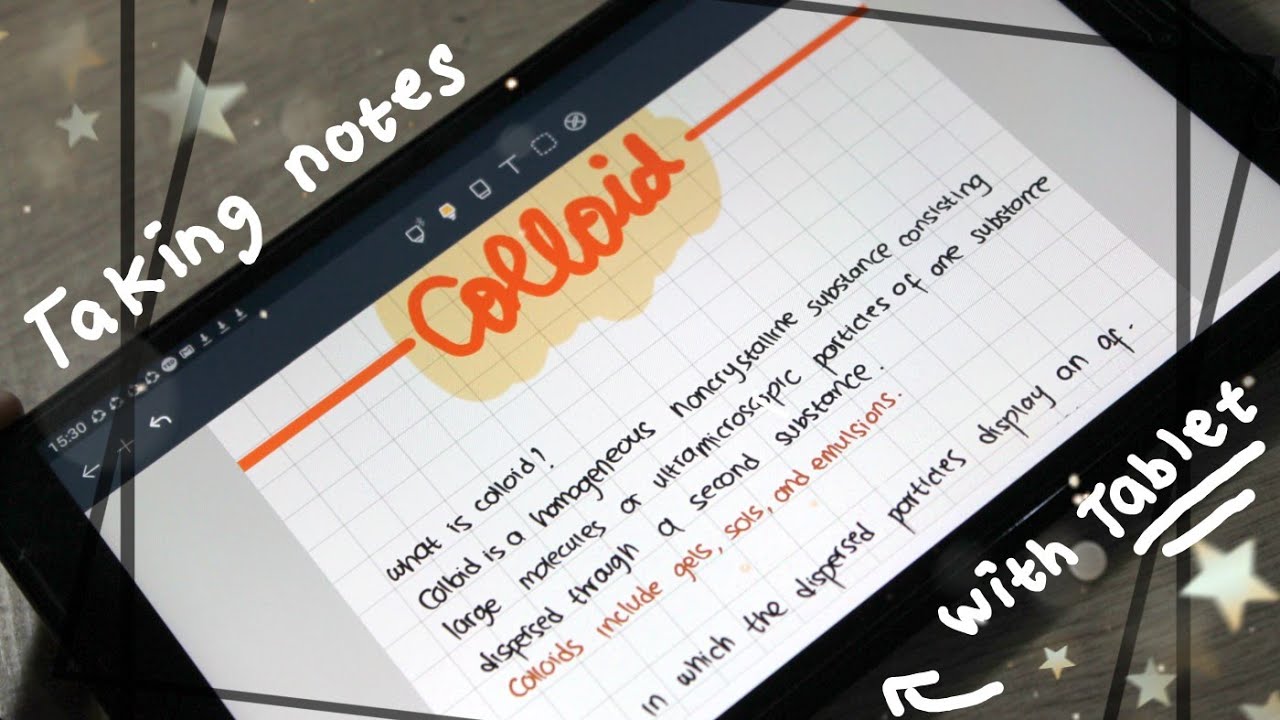 Taking notes
15:30
Colloid
what is colloid?
Colloid is a homogeneous noncrystalline substance consisting
large molecules or ultramicroscopic particles of one substance
dispersed through a second substance.
Colloids include gels, sols, and emulsions.
in which the dispersed particles display an af.
with Tablet